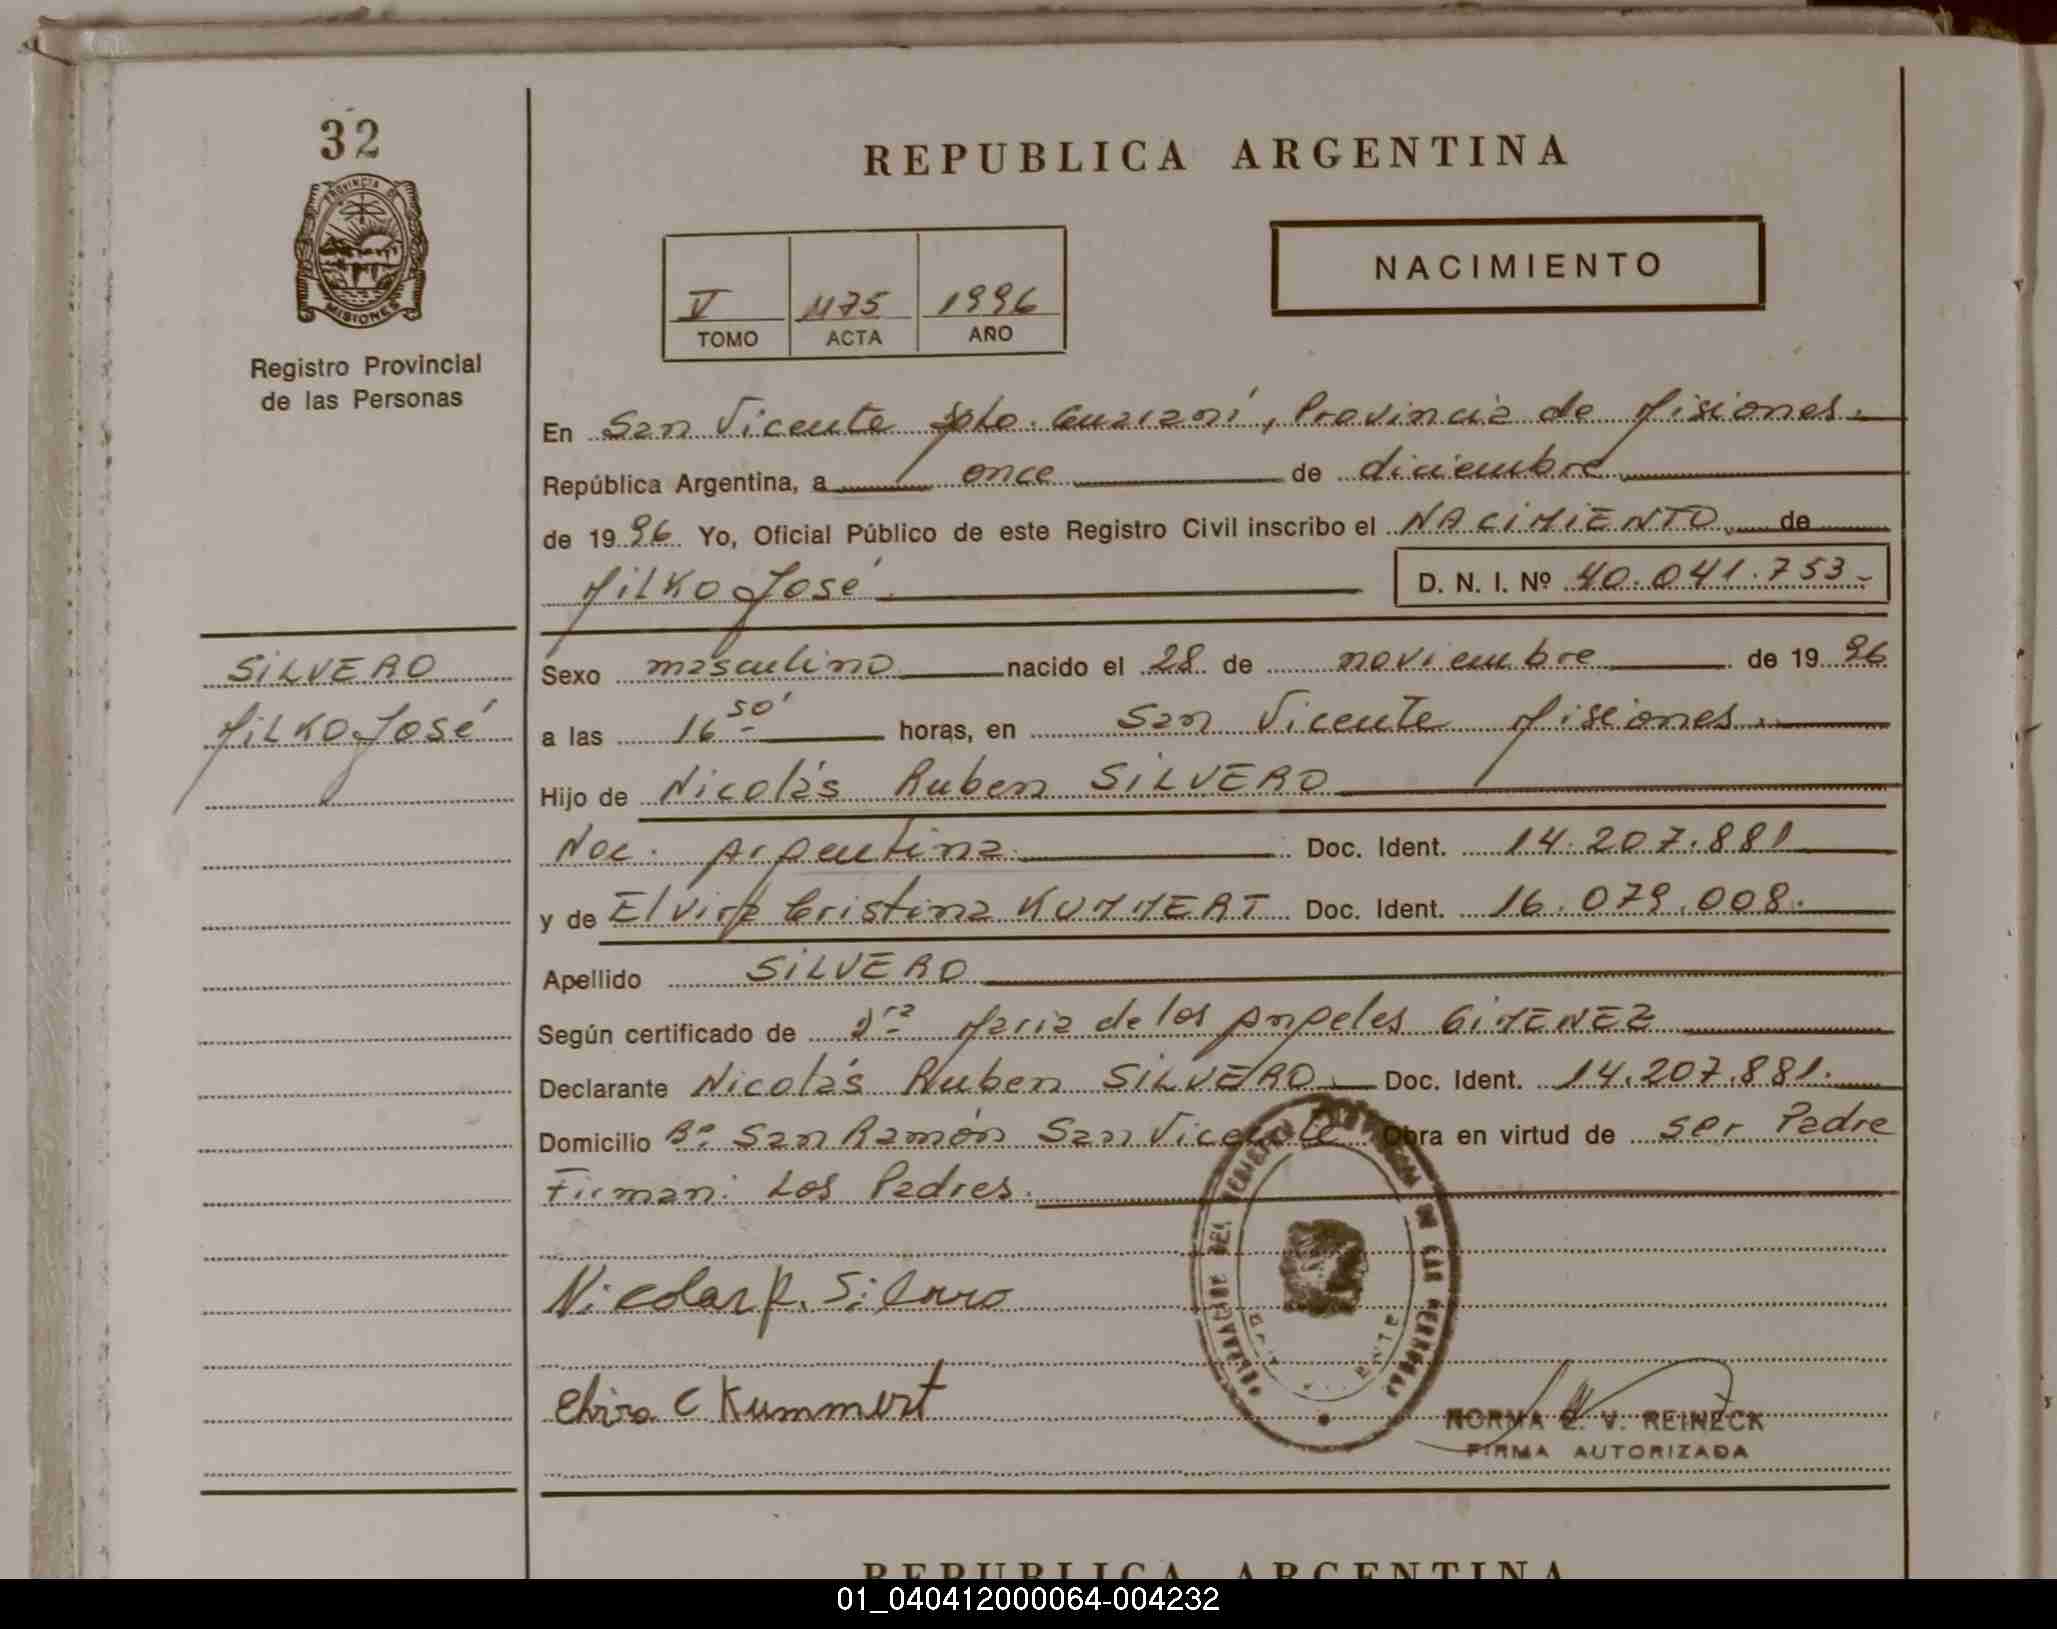 32
PROVINCIA DE
MISIONES
Registro Provincial
de las Personas
REPUBLICA ARGENTINA
NACIMIENTO
V 1175 1996
TOMO ACTA AÑO
En San Vicente Dpto. Guaraní, Provincia de Misiones.
República Argentina, a once de diciembre
de 1996 Yo, Oficial Público de este Registro Civil inscribo el NACIMIENTO de
Milko José D. N. I. Nº 40.041.753
SILVERO
Milko José
Sexo masculino nacido el 28 de noviembre de 1996
a las 16 50' horas, en San Vicente Misiones.
Hijo de Nicolás Ruben SILVERO
Nac. Argentina Doc. Ident. 14.207.881
y de Elvira Cristina KUMMERT Doc. Ident. 16.079.008.
Apellido SILVERO
Según certificado de Dra Maria de los Angeles GIMENEZ
Declarante Nicolás Ruben SILVERO Doc. Ident. 14.207.881.
Domicilio Bº San Ramón San Vicente Obra en virtud de ser Padre
Firman: Los Padres.
Nicolas R. Silvero
Elvira C Kummert
NORMA E. V. REINECK
FIRMA AUTORIZADA
REPUBLICA ARGENTINA
01_040412000064-004232